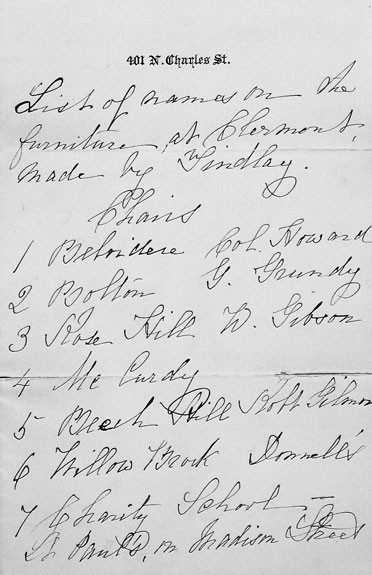 401 N. Charles St.
List of names on the
furniture, at Clermont,
made by Findlay.
Chairs
1 Belvidere Col. Howard
2 Bolton G. Grundy
3 Rose Hill W. Gibson
4 McCurdy
5 Beech Hill Robt Gilmor
6 Willow Brook Donnell's
7 Charity School —
St Paul's, on Madison Street